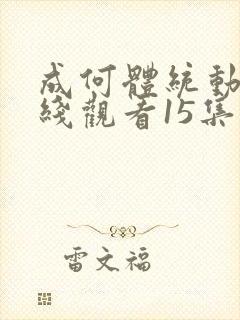 成何體統動
綫觀看15集
雷文福